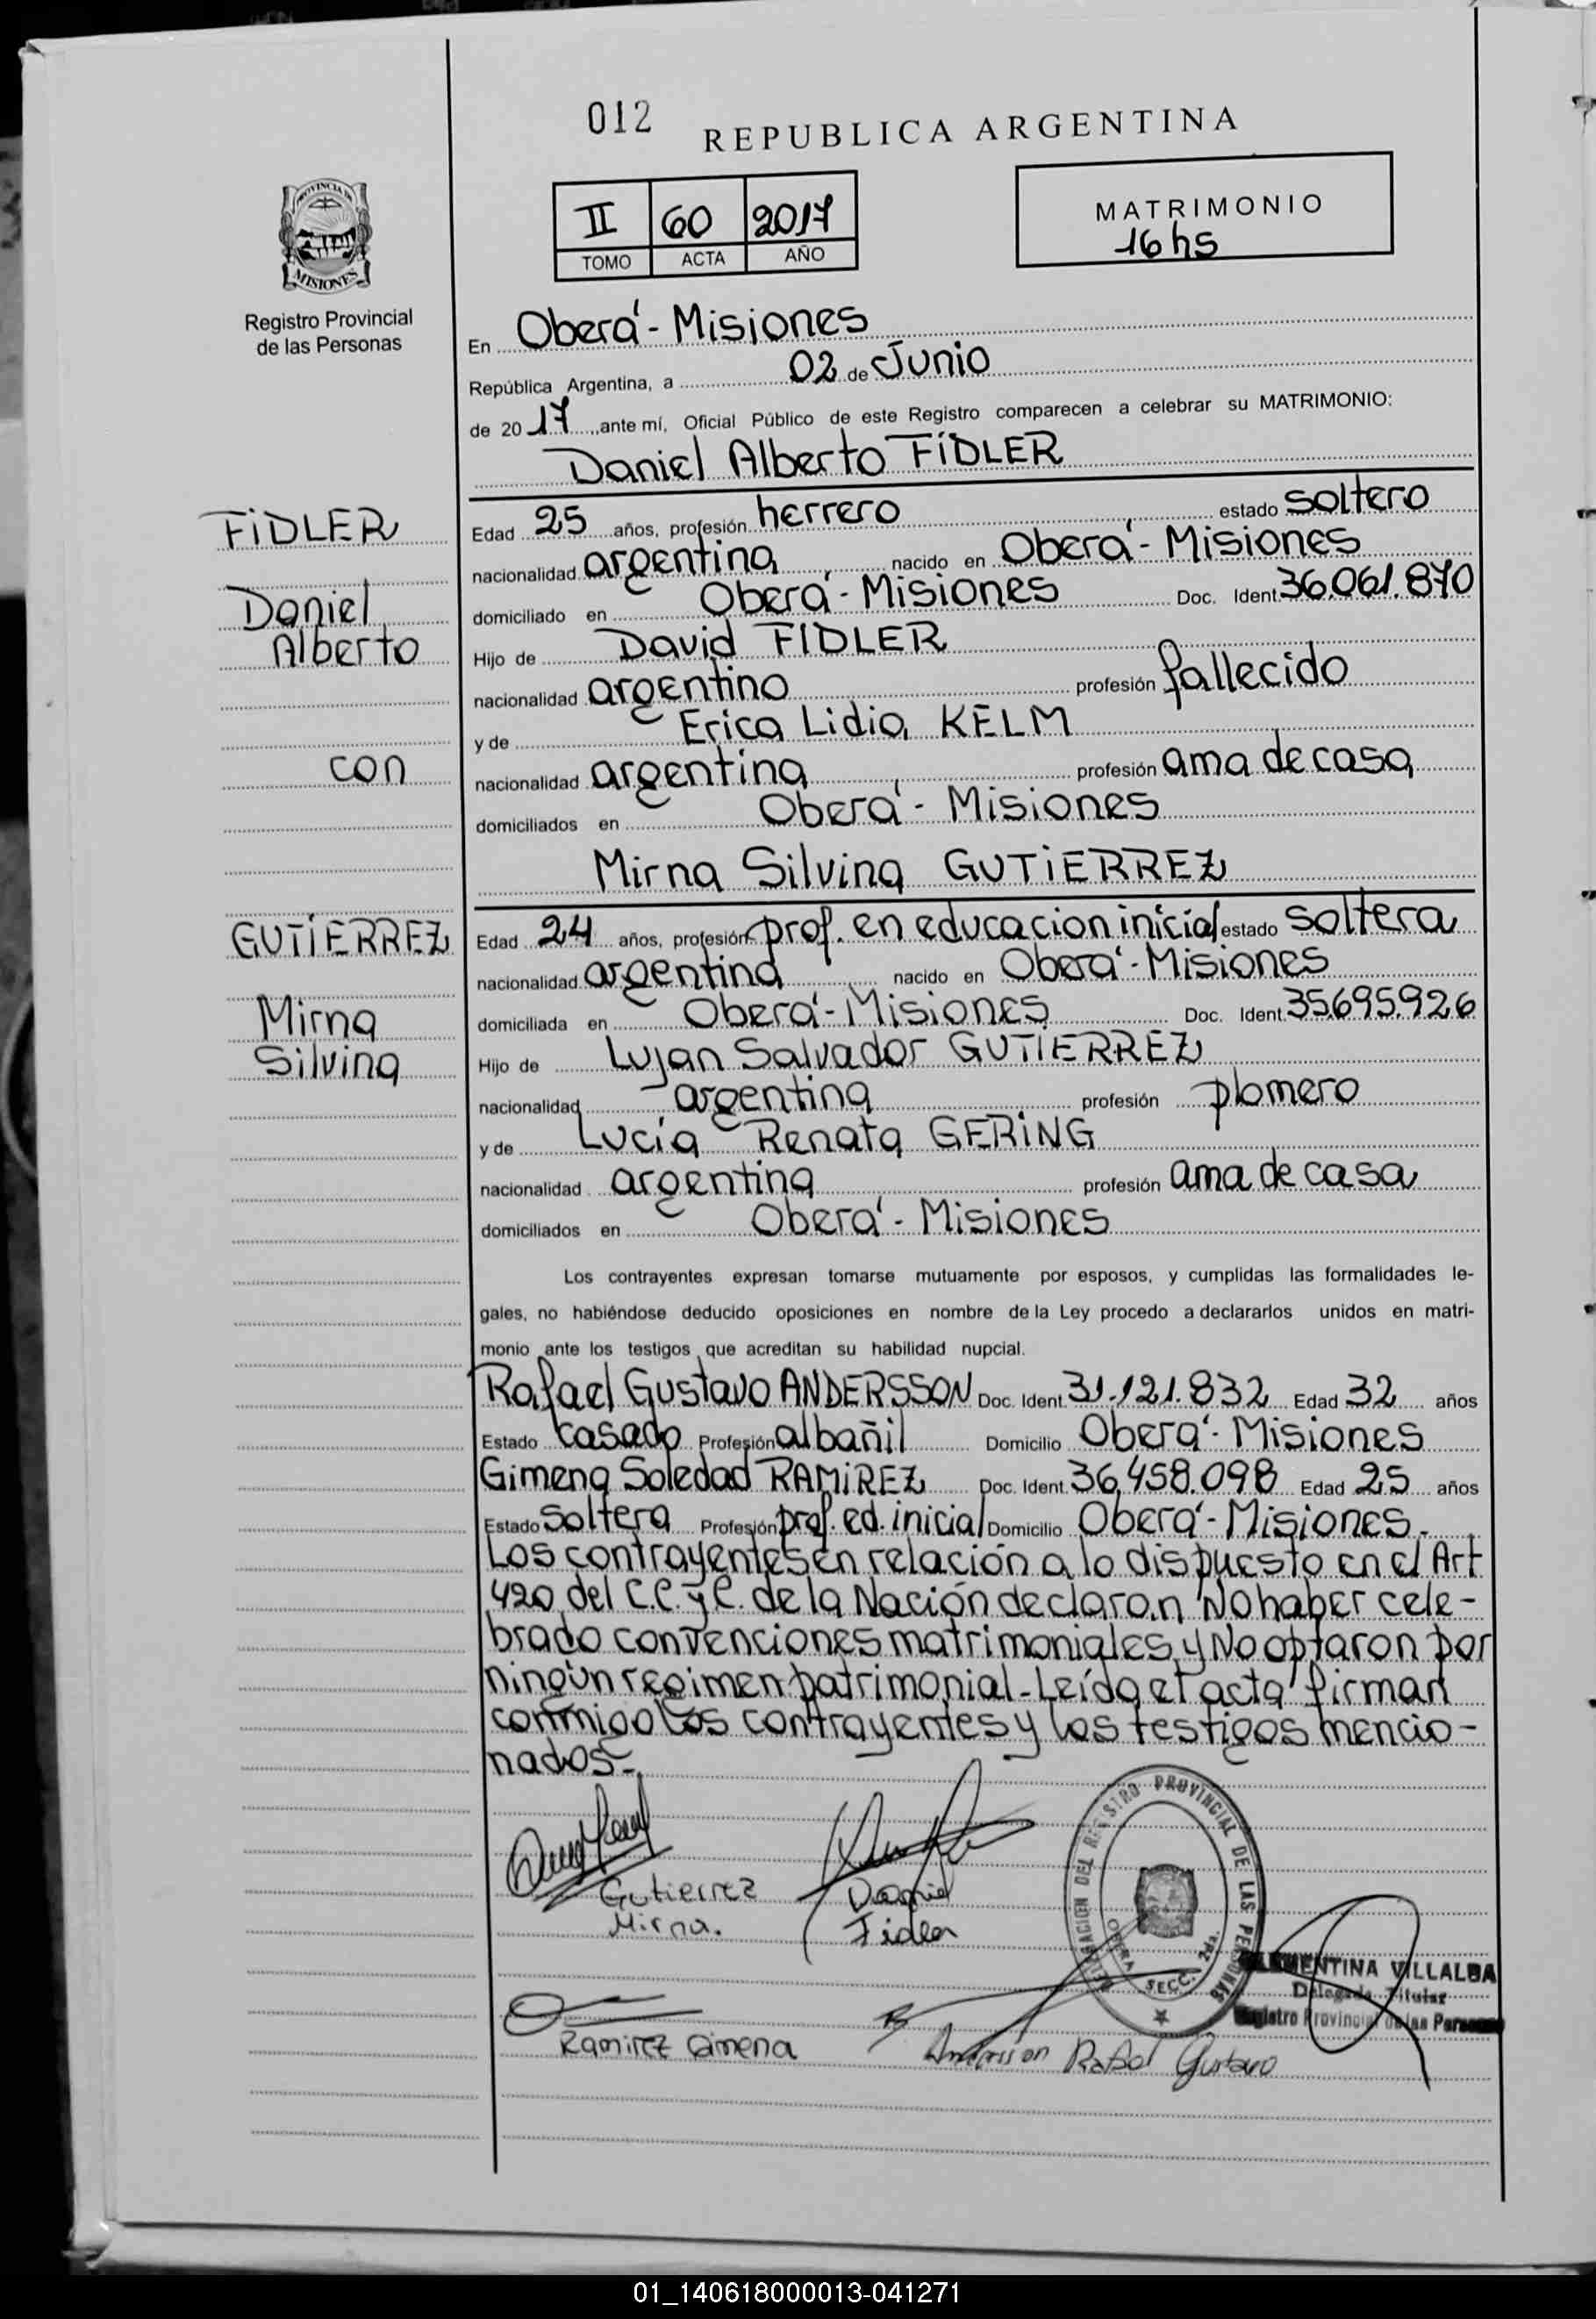 012
REPUBLICA ARGENTINA
II 60 2017
TOMO ACTA AÑO
MATRIMONIO
16 hs
PROVINCIA DE
MISIONES
Registro Provincial
de las Personas
En Oberá - Misiones
República Argentina, a 02 de Junio
de 2017, ante mí, Oficial Público de este Registro comparecen a celebrar su MATRIMONIO:
Daniel Alberto FiDLER
FiDLER
Daniel
Alberto
con
GUTiERREZ
Mirna
Silvina
Edad 25 años, profesión herrero estado soltero
nacionalidad argentina nacido en Oberá - Misiones
domiciliado en Oberá - Misiones Doc. Ident. 36.061.870
Hijo de David FIDLER
nacionalidad argentino profesión fallecido
y de Erica Lidia KELM
nacionalidad argentina profesión ama de casa
domiciliados en Oberá - Misiones
Mirna Silvina GUTiERREZ
Edad 24 años, profesión prof. en educacion inicial estado soltera
nacionalidad argentina nacido en Oberá - Misiones
domiciliada en Oberá - Misiones Doc. Ident. 35695.926
Hijo de Lujan Salvador GUTIERREZ
nacionalidad argentina profesión plomero
y de Lucia Renata GERiNG
nacionalidad argentina profesión ama de casa
domiciliados en Oberá - Misiones
Los contrayentes expresan tomarse mutuamente por esposos, y cumplidas las formalidades le-
gales, no habiéndose deducido oposiciones en nombre de la Ley procedo a declararlos unidos en matri-
monio ante los testigos que acreditan su habilidad nupcial.
Rafael Gustavo ANDERSSON Doc. Ident. 31.121.832 Edad 32 años
Estado casado Profesión albañil Domicilio Oberá - Misiones
Gimena Soledad RAMiREZ Doc. Ident. 36.458.098 Edad 25 años
Estado soltera Profesión prof. ed. inicial Domicilio Oberá - Misiones.
Los contrayentes en relación a lo dispuesto en el Art
420 del C.C. y C. de la Nación declaran No haber cele-
brado convenciones matrimoniales y No optaron por
ningún regimen patrimonial - Leída el acta firman
conmigo los contrayentes y los testigos mencio-
nados-.
Gutierrez
Mirna.
Daniel
Fidler
DELEGACION DEL REGISTRO PROVINCIAL DE LAS PERSONAS
OBERA SECC. 2da.
CLEMENTINA VILLALBA
Delegada Titular
Registro Provincial de las Personas
Ramirez Gimena
Andersson Rafael Gustavo
01_140618000013-041271